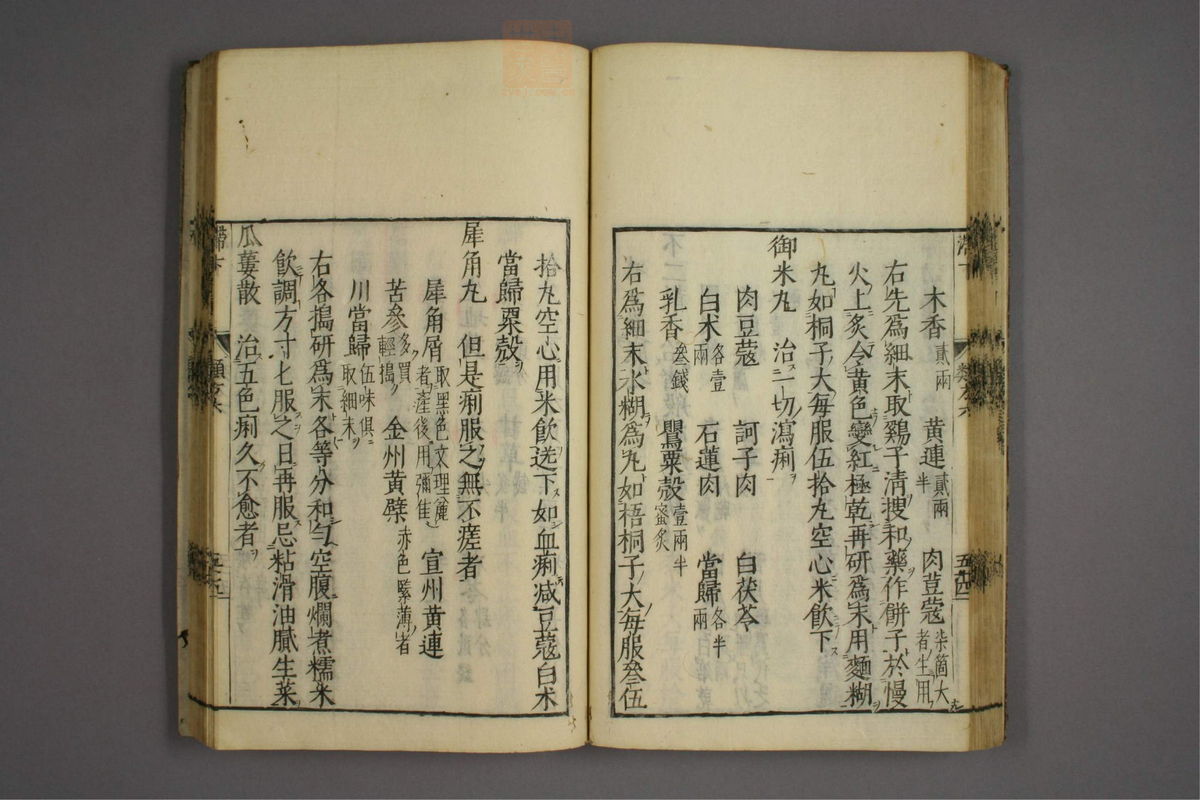 木香貳兩 黃連貳兩半 肉荳蔻柒箇大者生用
右先爲細末取鷄子清搜和藥作餅子於慢
火上炙令黃色變紅極乾再研爲末用麵糊
丸如桐子大每服伍拾丸空心米飲下
御米丸 治一切瀉痢
肉豆蔻 訶子肉 白茯苓
白术各壹兩 石蓮肉 當歸各半兩
乳香叄錢 罌粟殼壹兩半蜜炙
右爲細末水糊爲丸如梧桐子大每服叄伍
拾丸空心用米飲送下如血痢减豆蔻白术
當歸粟殼
犀角丸 但是痢服之無不瘥者
犀角屑取黑色文理麄者產後用彌佳 宣州黃連
苦參多買輕搗 金州黃檗赤色緊薄者
川當歸伍味俱取細末
右各搗研爲末各等分和勻空腹爛煮糯米
飲調方寸匕服之日再服忌粘滑油膩生菜
瓜蔞散 治五色痢久不愈者